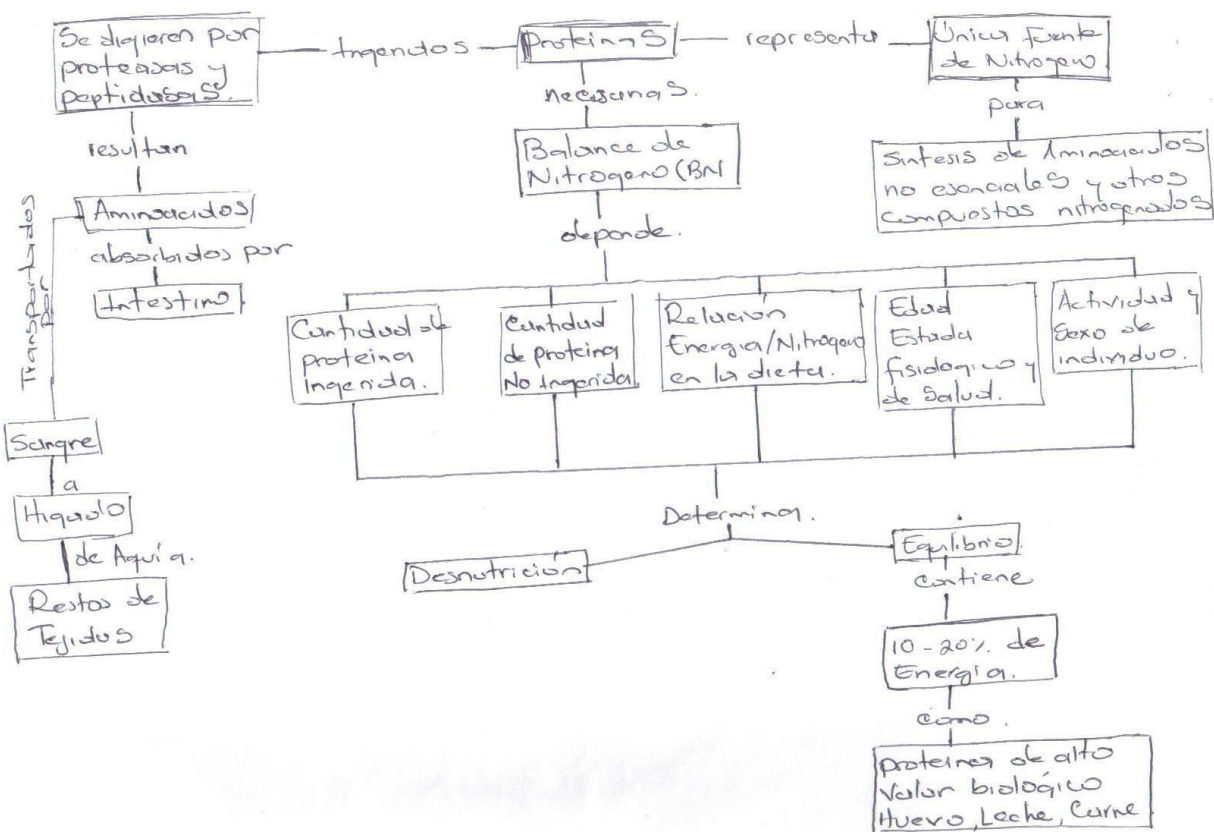 Se digieren por
proteasas y
peptidasas.
Ingeridos
Proteinas
representa
Única fuente
de Nitrogeno
resultan
necesarias.
para
Balance de
Nitrogeno (BN
Sintesis de Aminoacidos
no esenciales y otros
compuestos nitrogenados
Aminoacidos
Transportados
por
absorbidos por
Intestino
depende.
Cantidad de
proteina
Ingerida.
Cantidad
de proteina
No Ingerida
Relación
Energia/Nitrogeno
en la dieta.
Edad
Estada
fisiologico y
de Salud.
Actividad y
Sexo de
individuo.
Sangre
a
Higado
de Aqui a.
Restos de
Tejidos
Determina.
Desnutrición
Equilibrio.
contiene
10-20% de
Energia.
como.
proteinas de alto
Valor biológico
Huevo, Leche, Carne